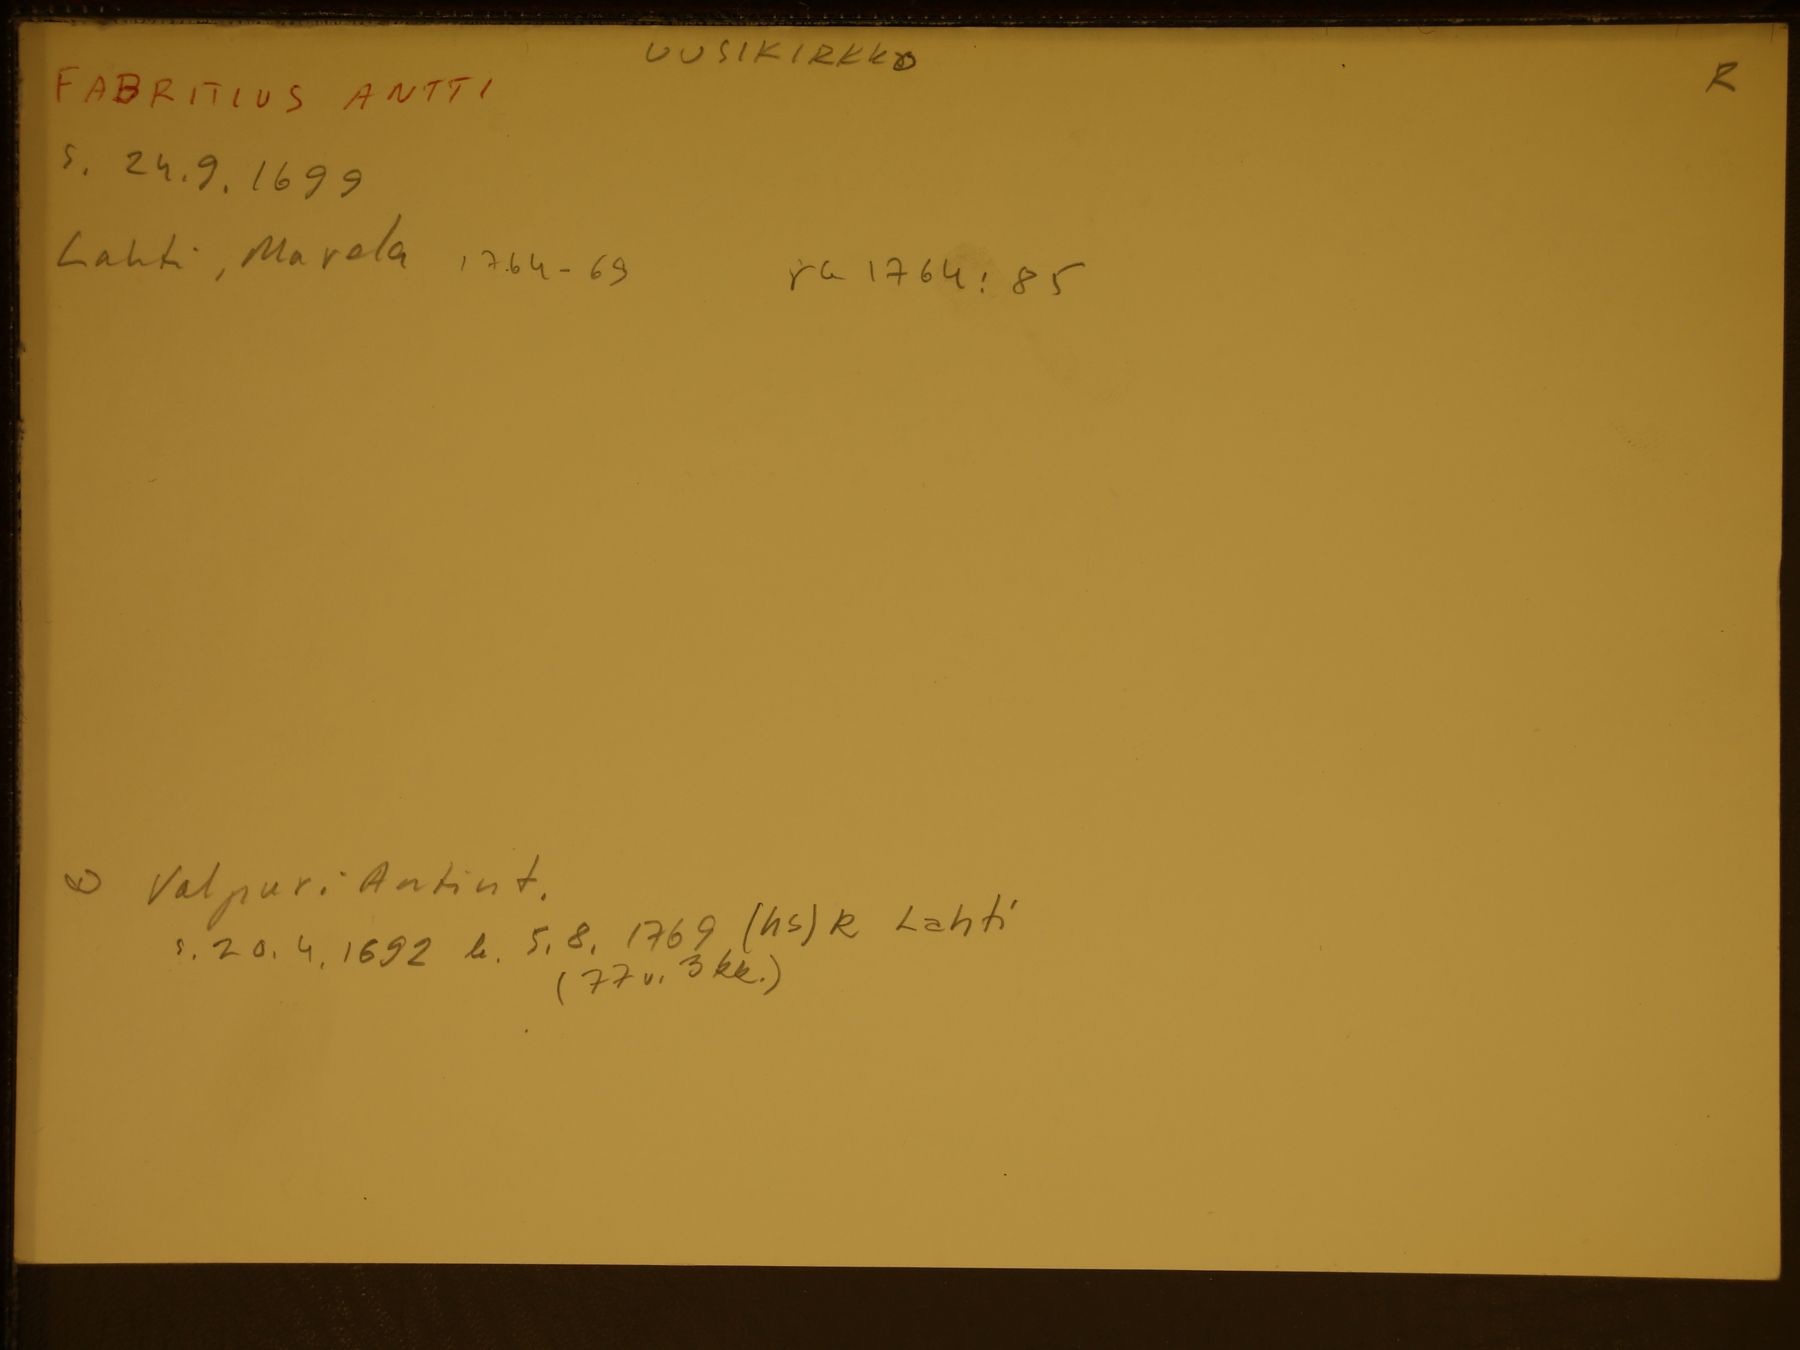 UUSIKIRKKO
R
FABRITIUS ANTTI
s. 24.9.1699
Lahti, Marela 1764-69 rk 1764: 85
∞ Valpuri Antint.
s. 20.4.1692 k. 5.8. 1769 (hs) R Lahti
(77 v. 3 kk.)